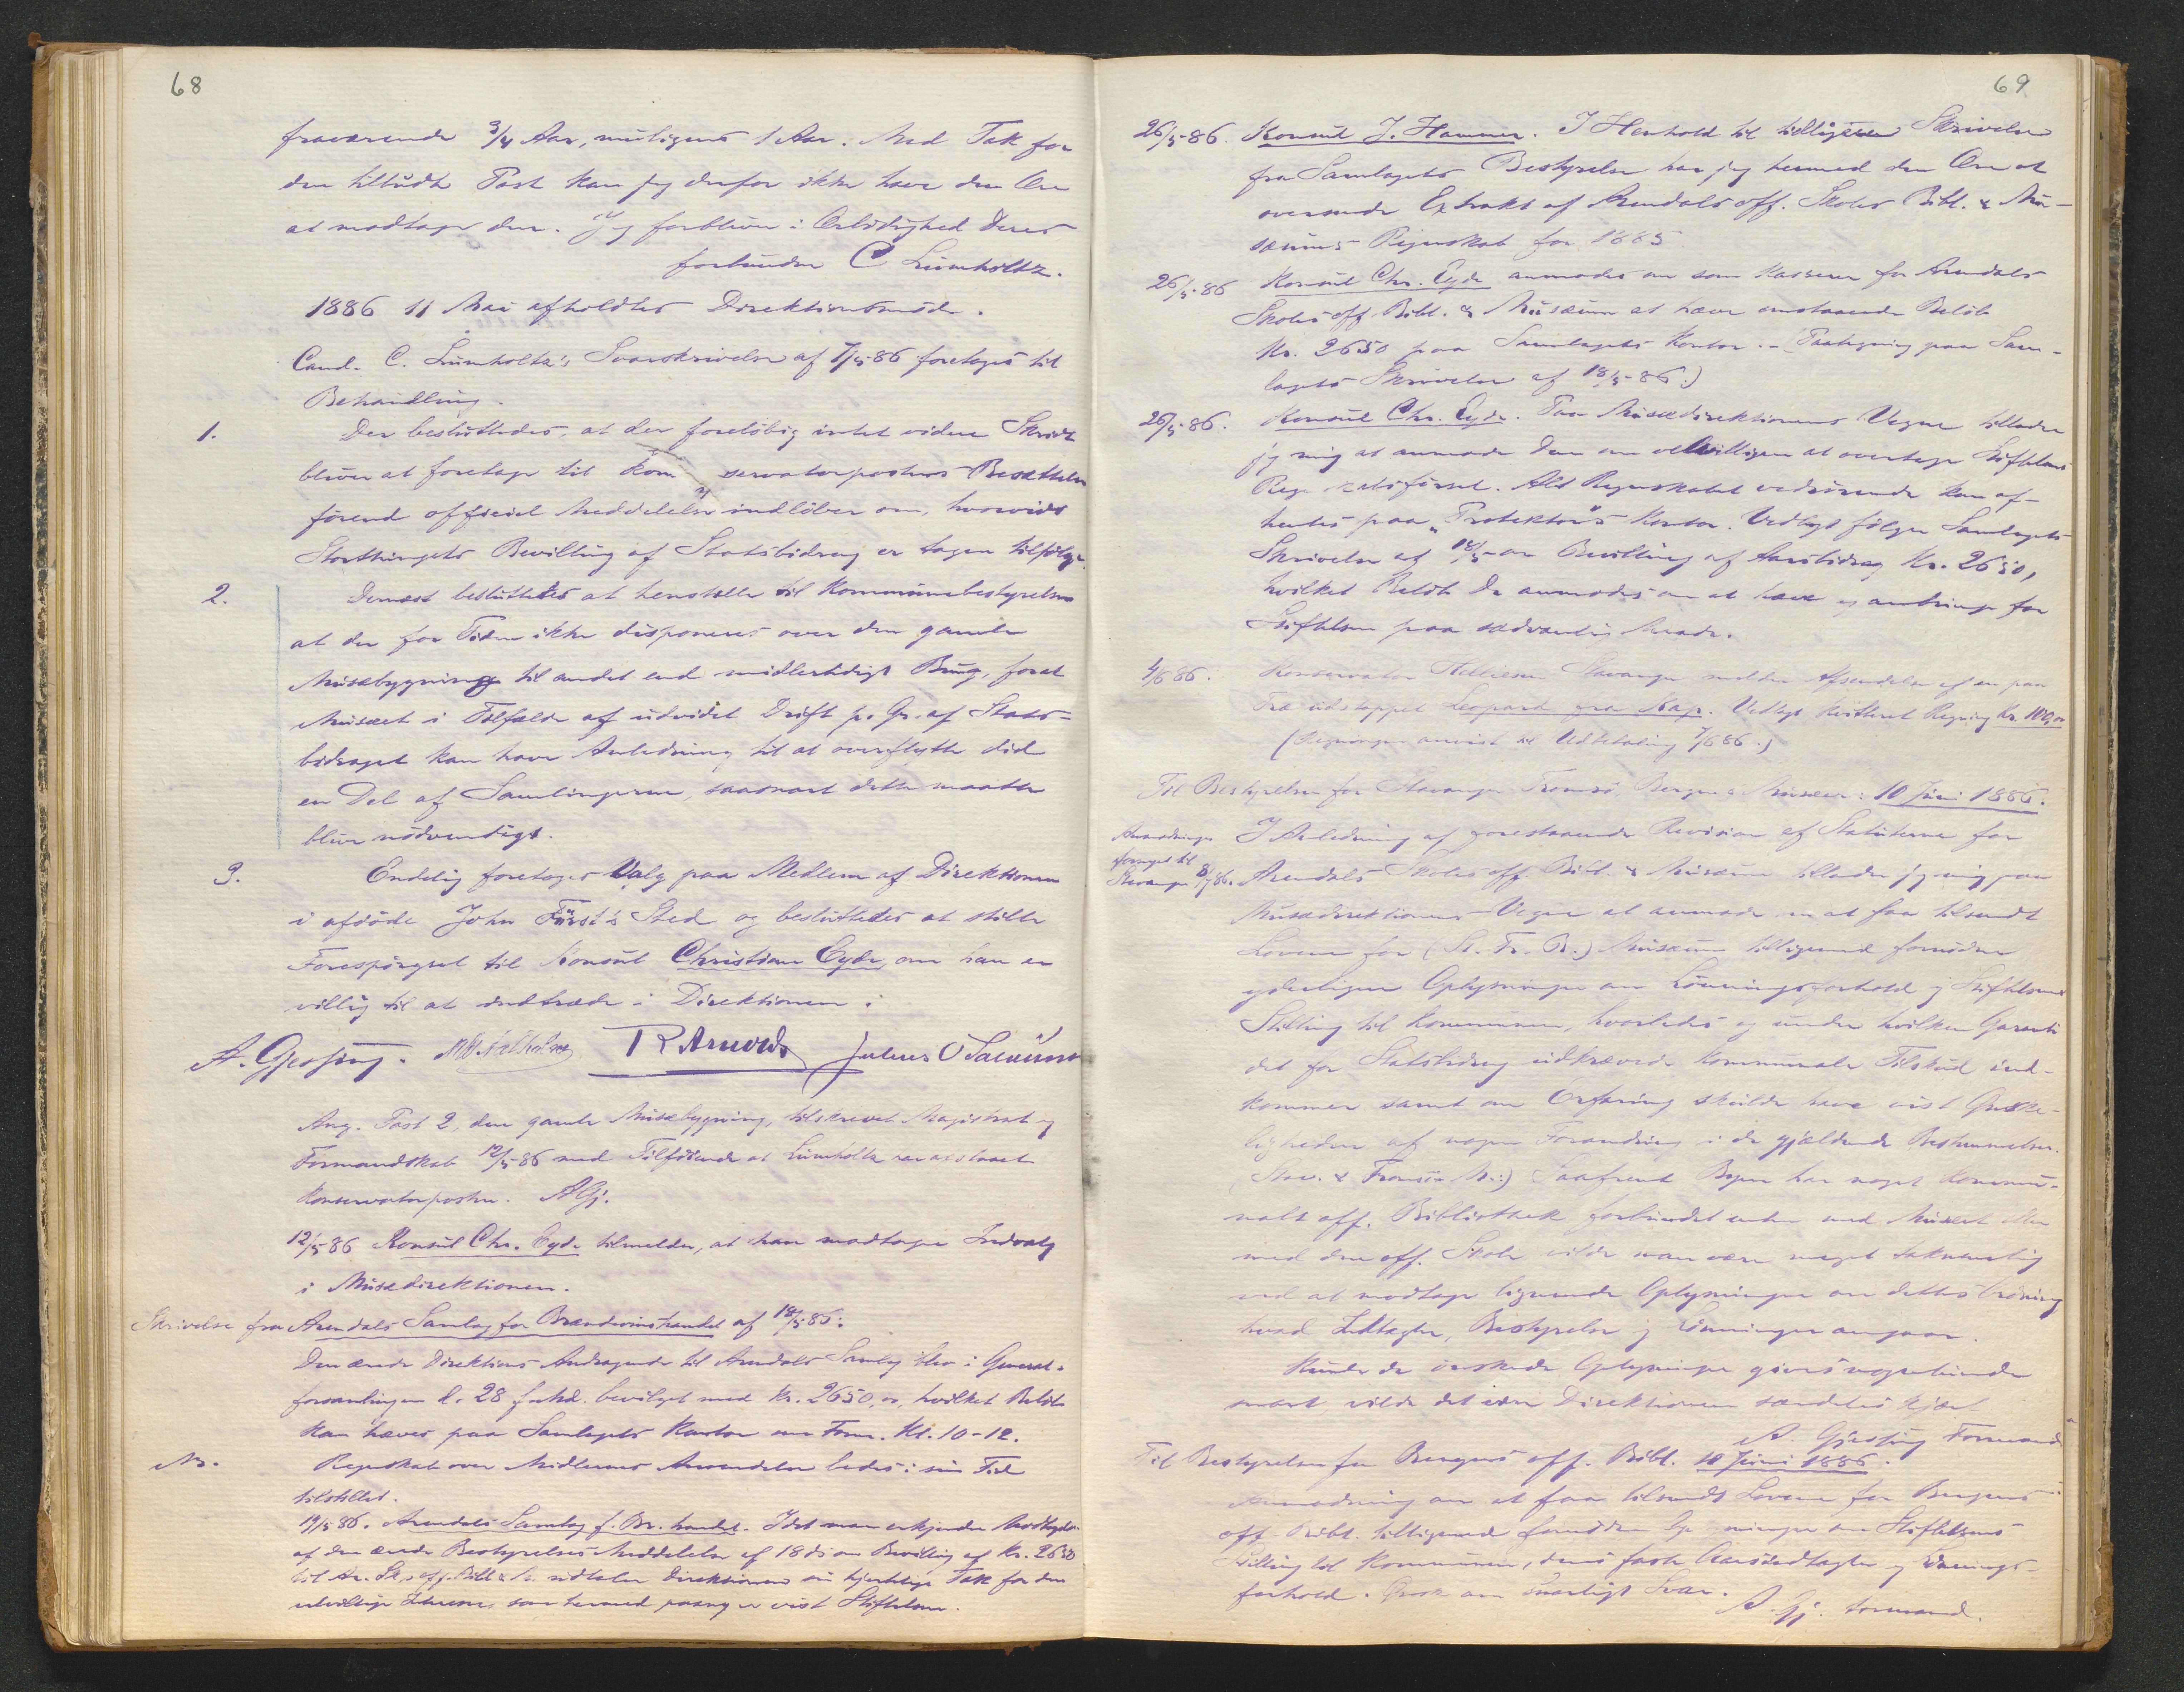 68
fraværende 3/4 Aar, muligens 1 Aar. Med Tak for
den tilbudte Post kan jeg derfor ikke have den Ære
at modtage den. Jeg forbliver i Ærbødighed Deres
forbundne C Lumholtz.
1886 11 Mai afholdtes Direktionsmøde.
Cand. C. Lumholtz's Svarskrivelse af 7/5 86 foretoges til
Behandling.
1. Der besluttedes, at der foreløbig intet videre Skridt
bliver at foretage til Konservatorpostens Besættelse
førend officiel Meddelelse indløber om, hvorvidt
Storthingets Bevilling af Statsbidrag er tagen tilfølge.
2. Dernæst besluttedes at henstille til Kommunebestyrelsen
at der for Tiden ikke disponeres over den gamle
Musæbygning til andet end midlertidigt Brug, forat
Musæet i Tilfælde af udvidet Drift p. Gr. af Stats-
bidraget kan have Anledning til at overflytte did
en Del af Samlingerne, saasnart dette maatte
blive nødvendigt.
3. Endelig foretoges Valg paa Medlem af Direktionen
i afdøde John Fürst's Sted og besluttedes at stille
Forespørgsel til Konsul Christian Eyde, om han er
villig til at indtræde i Direktionen:
A. Gjessing. R Arnords Julius O
Ang. Post 2, den gamle Musæbygning, tilskrevet Magistrat og
Formandskab 12/5 86 med Tilføiende at Lumholtz har afslaaet
Konservatorposten. AGj.
12/5 86 Konsul Chr. Eyde tilmelder, at han modtager Indvalg
i Musædirektionen.
Skrivelse fra Arendals Samlag for Brændevinshandel af 18/5 86.
Den ærede Direktions Andragende til Arendals Samlag blev i General-
forsamlingen d. 28 bevilget med Kr. 2650, hvilket Beløb
kan hæves paa Samlagets Kontor om Form. Kl. 10-12.
Regnskab over Midlernes Anvendelse bedes i sin Tid
tilstillet.
19/5 86. Arendals Samlag f. Br. handel. Idet man erkjender Modtagelse
af den ærede Bestyrelses Meddelelse af 18 ds om Bevilling af Kr. 2650
til Ar. Sk. off. Bibl. & M. udtaler Direktionen sin hjertelige Tak for den
velvillige Interesse, som hermed paany er vist Stiftelsen.
69
26/5-86. Konsul J. Hammer. I Henhold til tidligere Skrivelse
fra Samlagets Bestyrelse har jeg hermed den Ære at
oversende Extrakt af Arendals off. Skoles Bibl. & Mu-
sæums Regnskab for 1885
26/5-86 Konsul Chr. Eyde anmodes om som Kasserer for Arendals
Skoles off. Bibl. & Musæum at hæve omstaaende Beløb
Kr. 2650 paa Samlagets Kontor. - (Paategning paa Sam-
lagets Skrivelse af 18/5-86.)
26/5-86. Konsul Chr. Eyde. Paa Musædirektionens Vegne tillader
jeg mig at anmode Dem om velvilligen at overtage Stiftelsens
Regnskabsførsel. Alt Regnskabet vedrørende kan af-
hentes paa "Protektor's" Kontor. Vedlagt følger Samlagets
Skrivelse af 18/5 om Bevilling af Aarsbidrag Kr. 2650,
hvilket Beløb De anmodes om at hæve og anbringe for
Stiftelsen paa sædvanlig Maade.
4/6 86. Konservator Helliesen Stavanger melder Afsendelse af en paa
Træ udstoppet Leopard fra Kap. Vedlagt kvitteret Regning Kr. 100,00
(Regningen anvist til Udbetaling 7/6 86.)
Til Bestyrelsen for Stavanger Tromsø, Bergens Musæer: 10 Juni 1886.
Anmodningen
fornyet til
Stavanger 8/7 86.
I Anledning af forestaaende Revision af Statuterne for
Arendals Skoles off. Bibl. & Musæum tillader jeg mig paa
Musædirektionens Vegne at anmode om at faa tilsendt
Lovene for (St. Tr. B.) Musæum tilligemed fornødne
yderligere Oplysninger om Lønningsforhold og Stiftelsens
Stilling til Kommunen, hvorledes og under hvilken Garanti
det for Statsbidrag udkrævede kommunale Tilskud ind-
kommer samt om Erfaring skulde have vist Ønske-
ligheden af nogen Forandring i de gjældende Bestemmelser.
(Stav. & Tromsø M.:) Saafremt Byen har noget kommu-
nalt off. Bibliothek forbundet enten med Musæet eller
med den off. Skole vilde man være meget taknemlig
ved at modtage lignende Oplysninger om dettes
hvad Indtægter, Bestyrelse og Lønninger angaar.
Kunde de ønskede Oplysninger gives nogenlunde
snart, vilde det være Direktionen særdeles kjært
A. Gjessing Formand
Til Bestyrelsen for Bergens off. Bibl. 10 Juni 1886.
Anmodning om at faa tilsendt Lovene for Bergens
off. Bibl. tilligemed fornødne Oplysninger om Stiftelsens
Stilling til Kommunen, dens faste Aarsindtægter og Lønnings-
forhold. Ønske om snarligt Svar.
A. Gj. Formand.